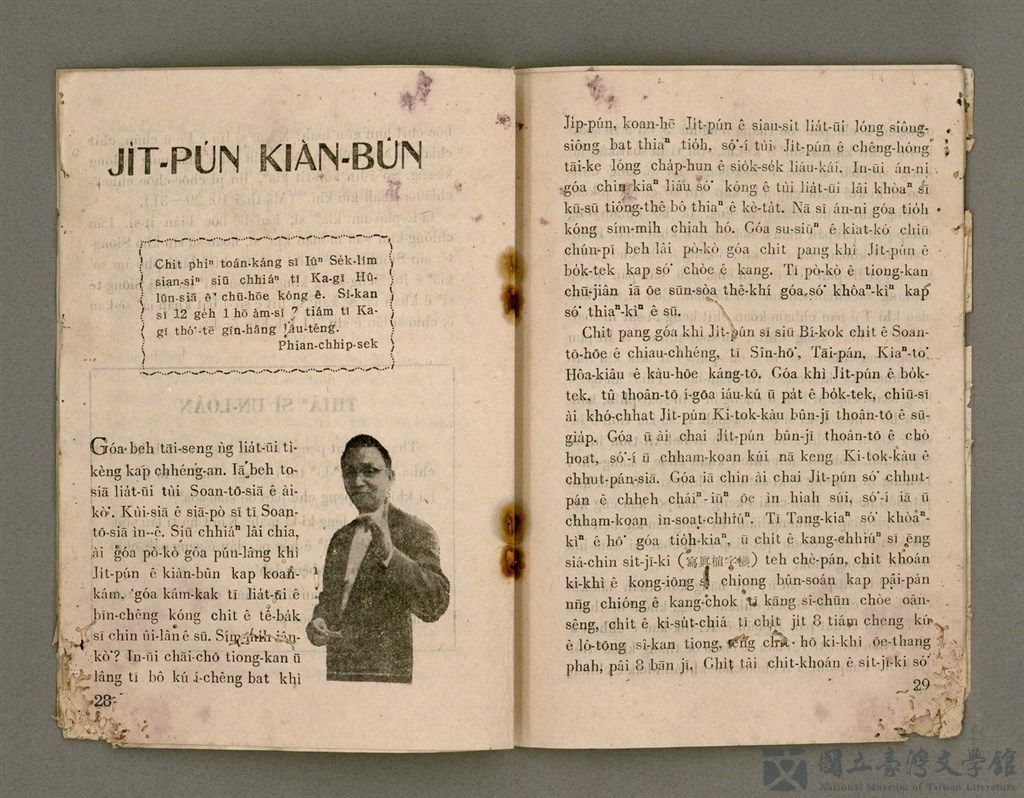 JI̍T-PÚN KIÀN-BÛN
Chit phiⁿ toán-káng sī Iûⁿ Se̍k-lîm
sian-siⁿ siū chhiáⁿ tī Ka-gī Hū-
lûn-siā ê chū-hōe kóng ê. Sî-kan
sī 12 ge̍h 1 hō àm-sî 7 tiám tī Ka-
gī thó͘-tē gîn-hâng lâu-téng.
Phian-chhip-sek
Góa beh tāi-seng n̂g lia̍t-ūi tì-
kèng kap chhéng-an. Iā beh to-
siā lia̍t-ūi tùi Soan-tō-siā ê ài-
kò͘. Kùi-siā ê siā-pò sī tī Soan-
tō-siā ìn--ê. Siū chhiáⁿ lâi chia,
ài góa pò-kò góa pún-lâng khì
Ji̍t-pún ê kiàn-bûn kap koan-
kám, góa kám-kak tī lia̍t-ūi ê
bīn-chêng kóng chit ê tê-ba̍k
sī chin ûi-lân ê sū. Sím-mih iân-
kò͘? In-ūi chāi-chō tiong-kan ū
lâng tī bô kú í-chêng bat khì
28
Ji̍p-pún, koan-hē Ji̍t-pún ê siau-sit lia̍t-ūi lóng siông-
siông bat thiaⁿ tio̍h, só͘-í tùi Ji̍t-pún ê chêng-hóng
tāi-ke lóng cha̍p-hun ê sio̍k-se̍k liáu-kái. In-ūi án-ni
góa chin kiaⁿ liáu só͘ kóng ê tùi lia̍t-ūi lâi khòaⁿ sī
kū-sū tiông-thê bô thiaⁿ ê kè-ta̍t. Nā sī án-ni góa tio̍h
kóng sim-mi̍h chiah hó. Góa su-siūⁿ ê kiat-kó chiū
chún-pī beh lâi pò-kò góa chit pang khì Ji̍t-pún ê
bo̍k-tek kap só͘ chòe ê kang. Tī pò-kò ê tiong-kan
chū-jiân iā ōe sūn-sòa thê-khí góa só͘ khòaⁿ-kìⁿ kap
só͘ thiaⁿ-kìⁿ ê sū.
Chit pang góa khì Ji̍t-pún sī siū Bí-kok chit ê Soan-
tō-hōe ê chiau-chhéng, tī Sîn-hō͘, Tāi-pán, Kiaⁿ-to͘
Hôa-kiâu ê kàu-hōe káng-tō. Góa khì Ji̍t-pún ê bo̍k-
tek, tû thoân-tō í-gōa iáu-kú ū pa̍t ê bo̍k-tek, chiū-sī
ài khó-chhat Ji̍t-pún Ki-tok-kàu bûn-jī thoân-tō ê sū-
gia̍p. Góa ū ài chai Ji̍t-pún bûn-jī thoân-tō ê chò
hoat, só͘-í ū chham-koan kúi nā keng Ki-tok-kàu ê
chhut-pán-siā. Góa iā chin ài chai Ji̍t-pún só͘ chhut-
pán ê chheh cháiⁿ-iūⁿ ōe ìn hiah súi, só͘-í iā ū
chham-koan ìn-soat-chhiúⁿ. Tī Tang-kiaⁿ só͘ khòaⁿ-
kìⁿ ê hō͘ góa tio̍h-kiaⁿ, ū chit ê kang-chhiúⁿ sī ēng
siá-chin si̍t-jī-ki (寫眞植字機) teh chè-pán, chit khoán
ki-khì ê kong-iōng sī chiong bûn-soán kap pâi-pán
nn̄g chióng ê kang-chok tī kāng sî-chūn chòe oân-
sêng, chit ê ki-su̍t-chiá tī chi̍t ji̍t 8 tiám cheng kú
ê lô-tōng sî-kan tiong, ēng chit hō ki-khì ōe-thang
phah, pâi 8 bān jī. Chit tâi chit-khoán ê si̍t-jī-ki só͘
29
國立臺灣文學館
National Museum of Taiwan Literature